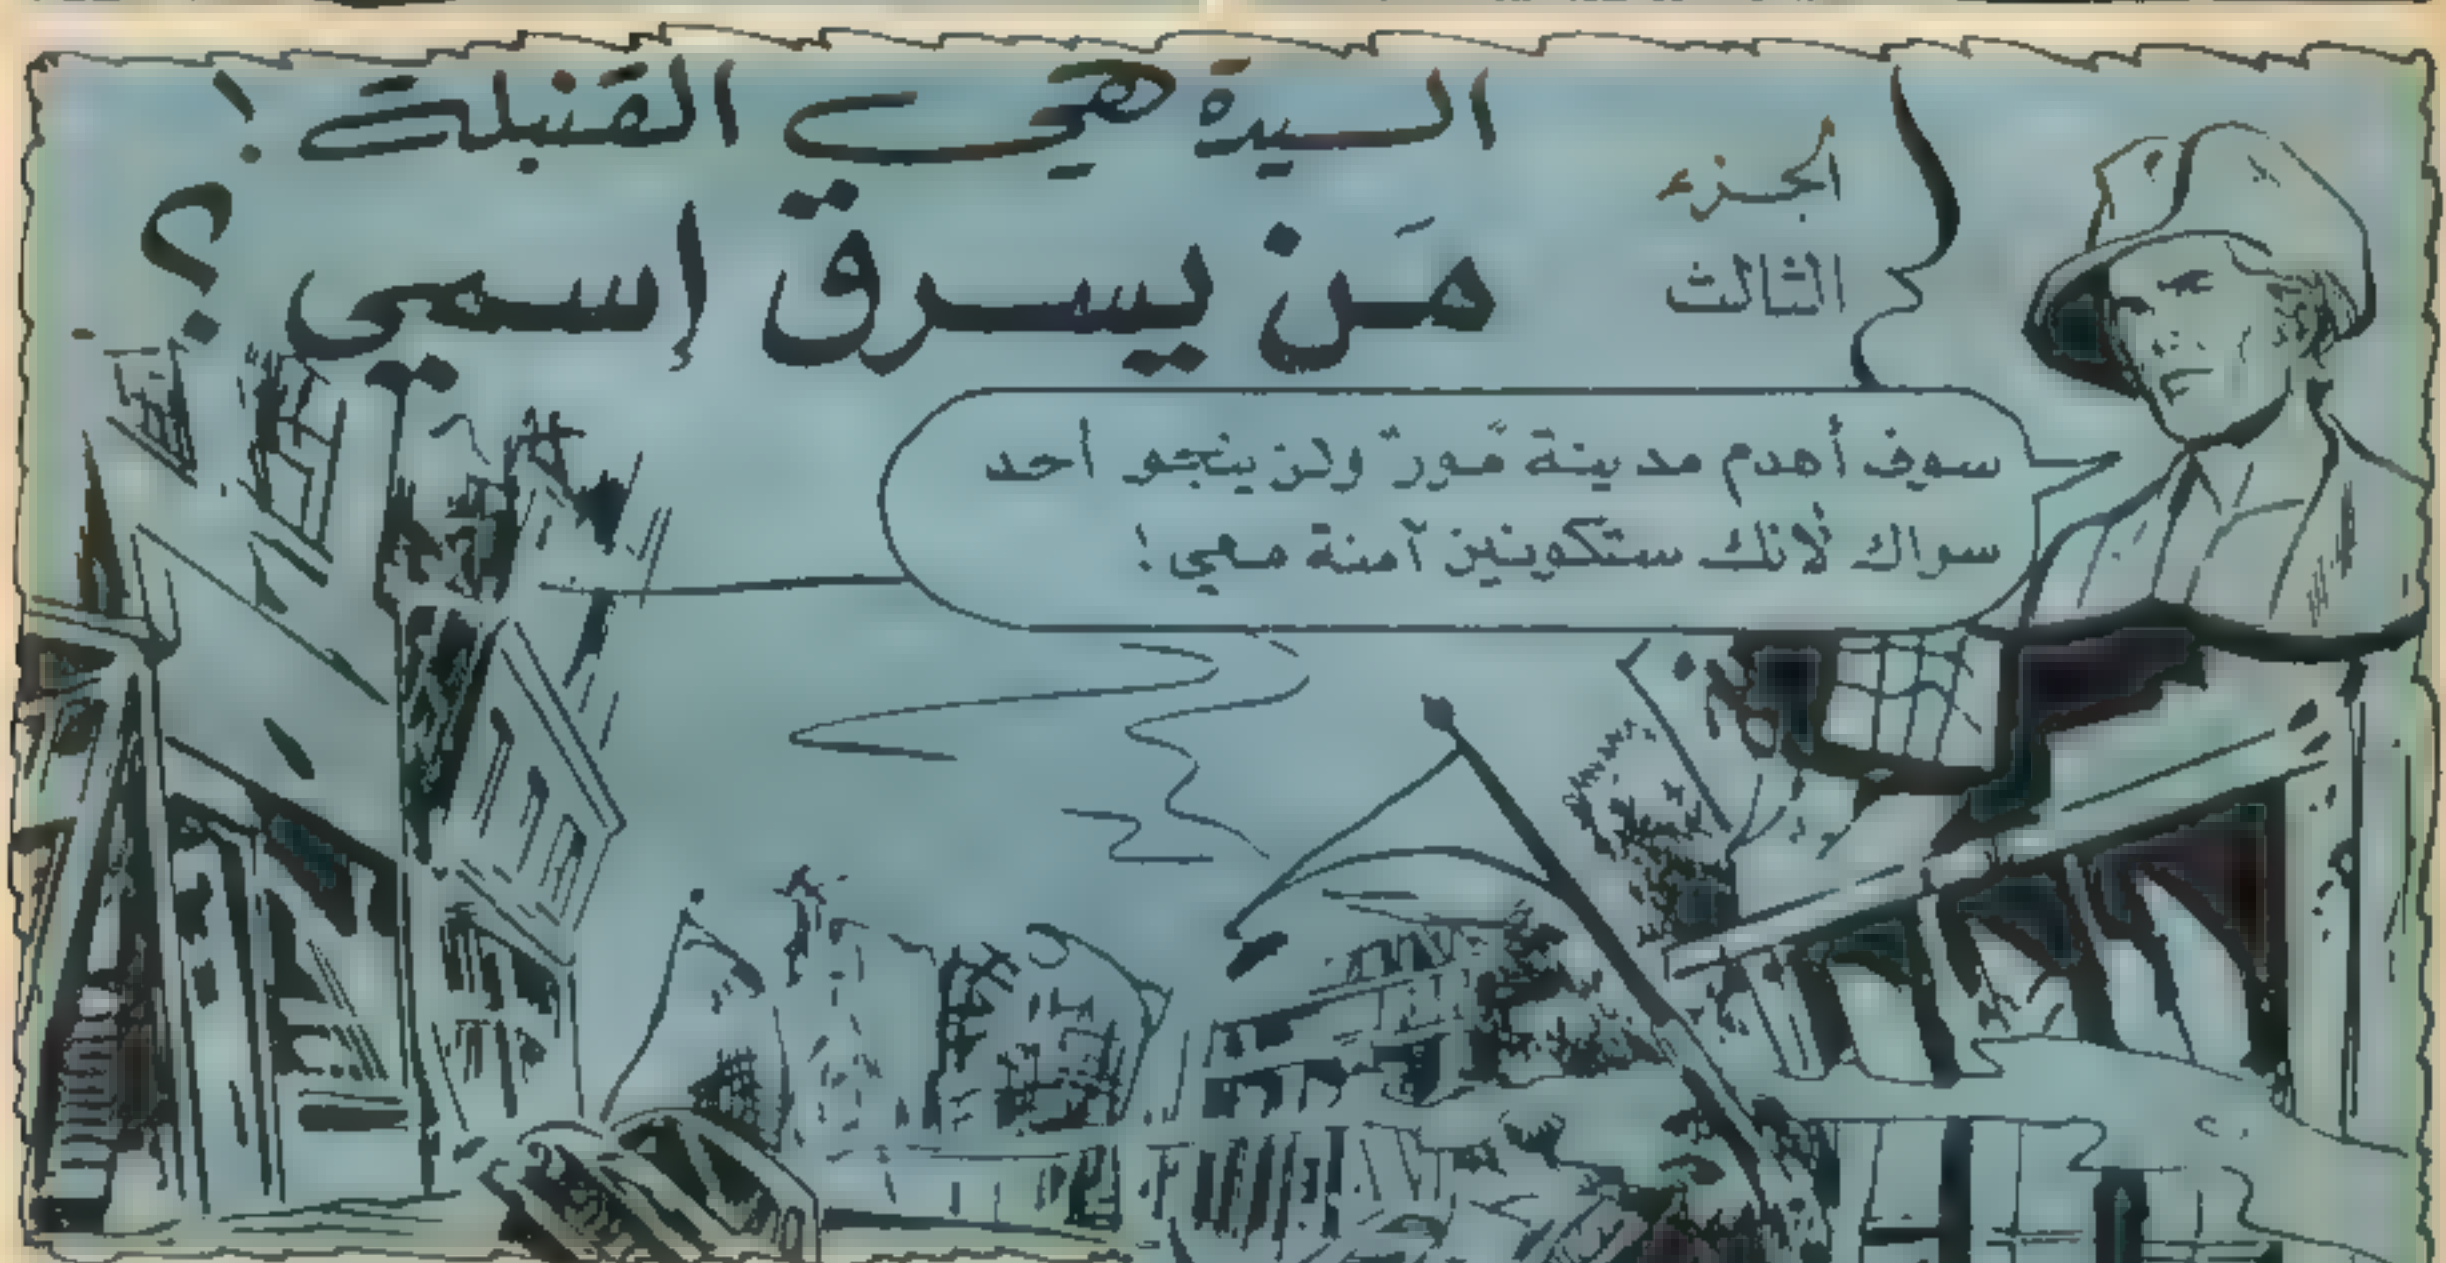 الجزء
الثالث
السيدة هي القنبلة!
مَن يسرق إسمي؟
سوف أهدم مدينة "مور" ولن ينجو أحد
سواك لأنك ستكونين آمنة معي!